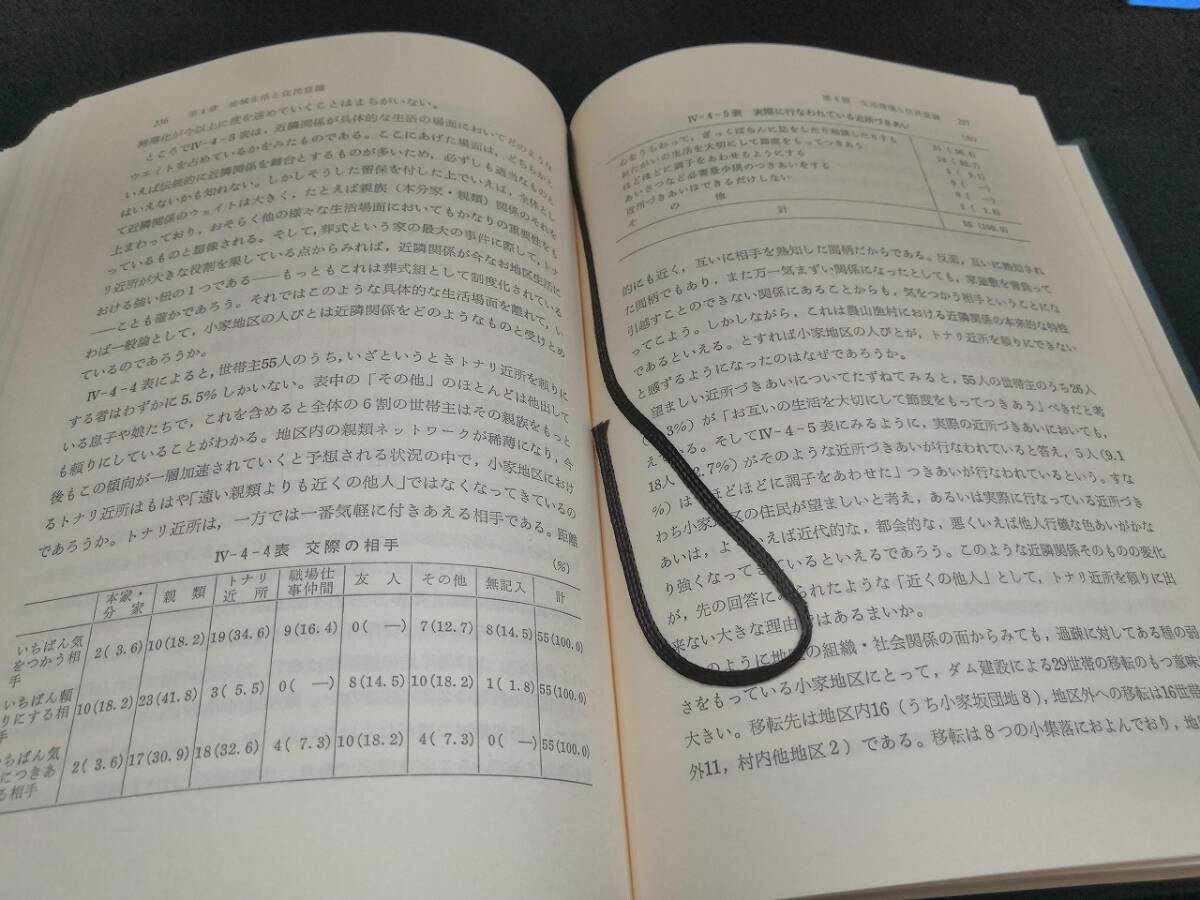 236 第4章 地域生活と住民意識
稀薄化が今以上に度を速めていくことはまちがいない。
ところでⅣ-4-3表は，近隣関係が具体的な生活の場面においてどのような
ウェイトを占めているかをみたものである。ここにあげた場面は，どちらかと
いえば伝統的に近隣関係を舞台とするものが多いため，必ずしも適当なものと
はいえないかも知れない。しかしそうした留保を付した上でいえば，全体とし
て近隣関係のウェイトは大きく，たとえば親族（本分家・親類）関係のそれを
上まわっており，おそらく他の様々な生活場面においてもかなりの重要性をも
っているものと想像される。そして，葬式という家の最大の事件に際して，トナ
リ近所が大きな役割を果している点からみれば，近隣関係が今なお地区生活に
おける強い紐の1つである——もっともこれは葬式組として制度化されている
——ことも確かであろう。それではこのような具体的な生活場面を離れて，い
わば一般論として，小家地区の人びとは近隣関係をどのようなものと受けとめ
ているのであろうか。
Ⅳ-4-4表によると，世帯主55人のうち，いざというときトナリ近所を頼りに
する者はわずかに5.5%しかいない。表中の「その他」のほとんどは他出して
いる息子や娘たちで，これを含めると全体の6割の世帯主はその親族をもっと
も頼りにしていることがわかる。地区内の親類ネットワークが稀薄になり，今
後もこの傾向が一層加速されていくと予想される状況の中で，小家地区におけ
るトナリ近所はもはや「遠い親類よりも近くの他人」ではなくなってきているの
であろうか。トナリ近所は，一方では一番気軽に付きあえる相手である。距離
Ⅳ-4-4表 交際の相手
(%)
本家・分家 親類 トナリ近所 職場仕事仲間 友人 その他 無記入 計
いちばん気をつかう相手 2( 3.6) 10(18.2) 19(34.6) 9(16.4) 0( —) 7(12.7) 8(14.5) 55(100.0)
いちばん頼りにする相手 10(18.2) 23(41.8) 3( 5.5) 0( —) 8(14.5) 10(18.2) 1( 1.8) 55(100.0)
ちばん気につきある相手 2( 3.6) 17(30.9) 18(32.6) 4( 7.3) 10(18.2) 4( 7.3) 0( —) 55(100.0)
第4章 生活環境と住民意識 237
Ⅳ-4-5表 実際に行なわれている近所づきあい
(%)
心をうちわって，ざっくばらんに話をしたり相談したりする
おたがいの生活を大切にして節度をもってつきあう
ほどほどに調子をあわせるようにする
あいさつなど必要最少限のつきあいをする
近所づきあいはできるだけしない
その他
計 55 (100.0)
的にも近く，互いに相手を熟知した間柄だからである。反面，互いに熟知され
た間柄でもあり，また万一気まずい関係になったとしても，家屋敷を背負って
引越すことのできない関係にあることからも，気をつかう相手ということにな
ってこよう。しかしながら，これは農山漁村における近隣関係の本来的な特性
であるといえる。とすれば小家地区の人びとが，トナリ近所を頼りにできない
と感ずるようになったのはなぜであろうか。
望ましい近所づきあいについてたずねてみると，55人の世帯主のうち26人
.3%）が「お互いの生活を大切にして節度をもってつきあう」べきだと考
えている。そしてⅣ-4-5表にみるように，実際の近所づきあいにおいても，
18人 2.7%）がそのような近所づきあいが行なわれていると答え，5人（9.1
%）は ほどほどに調子をあわせた」つきあいが行なわれているという。すな
わち小家 区の住民が望ましいと考え，あるいは実際に行なっている近所づき
あいは，よ いえば近代的な，都会的な，悪くいえば他人行儀な色あいがかな
り強くなってき ているといえるであろう。このような近隣関係そのものの変化
が，先の回答に られたような「近くの他人」として，トナリ近所を頼りに出
来ない大きな理由 はあるまいか。
のように地 の組織・社会関係の面からみても，過疎に対してある種の弱
さをもっている小家地区にとって，ダム建設による29世帯の移転のもつ意味
大きい。移転先は地区内16（うち小家坂団地8），地区外への移転は16世帯
外11，村内他地区2）である。移転は8つの小集落におよんでおり，地